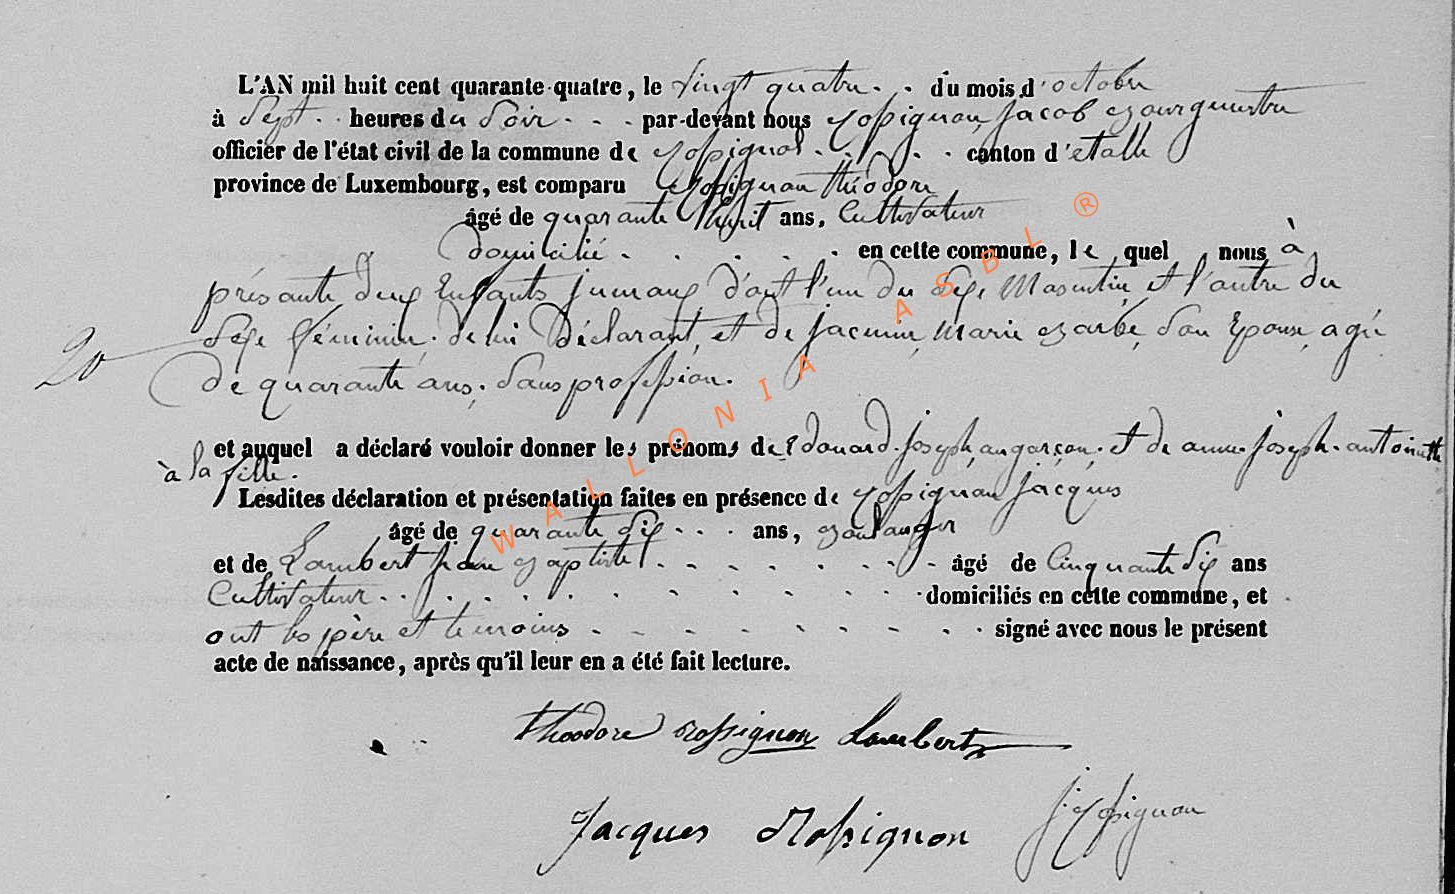 L'AN mil huit cent quarante-quatre, le vingt quatre . . du mois d'octobre
à Sept . . heures du Soir . . . par-devant nous Rossignon Jacob Bourguestre
officier de l'état civil de la commune de Rossignol . . . . canton d'etalle
province de Luxembourg, est comparu Rossignon théodore
âgé de quarante huit ans, Cultivateur
domicilié . . . . . en cette commune, le quel nous à
présanté deux Enfants jumaux d'ont l'un du Sexe Masculin, et l'autre du
Sexe féminin. de lui Déclarant, et de jacmin, Marie Barbe, Son Epouse, agée
20
de quarante ans, Sans profession.
et auquel a déclaré vouloir donner les prénoms de Edouard Joseph au garçon. et de anne. joseph. antoinette
à la fille.
Lesdites déclaration et présentation faites en présence de Rossignon Jacques
âgé de quarante Six . . . ans, Boulanger
et de Lambert jean Baptiste . . . . . . . . âgé de Cinquante Six ans
Cultivateur . . . . . . . . . . . domiciliés en cette commune, et
ont les père et temoins . . . . . . . . . signé avec nous le présent
acte de naissance, après qu'il leur en a été fait lecture.
théodore rossignon Lambert
Jacques Rossignon J. Rossignon
WALLONIA ASBL ®